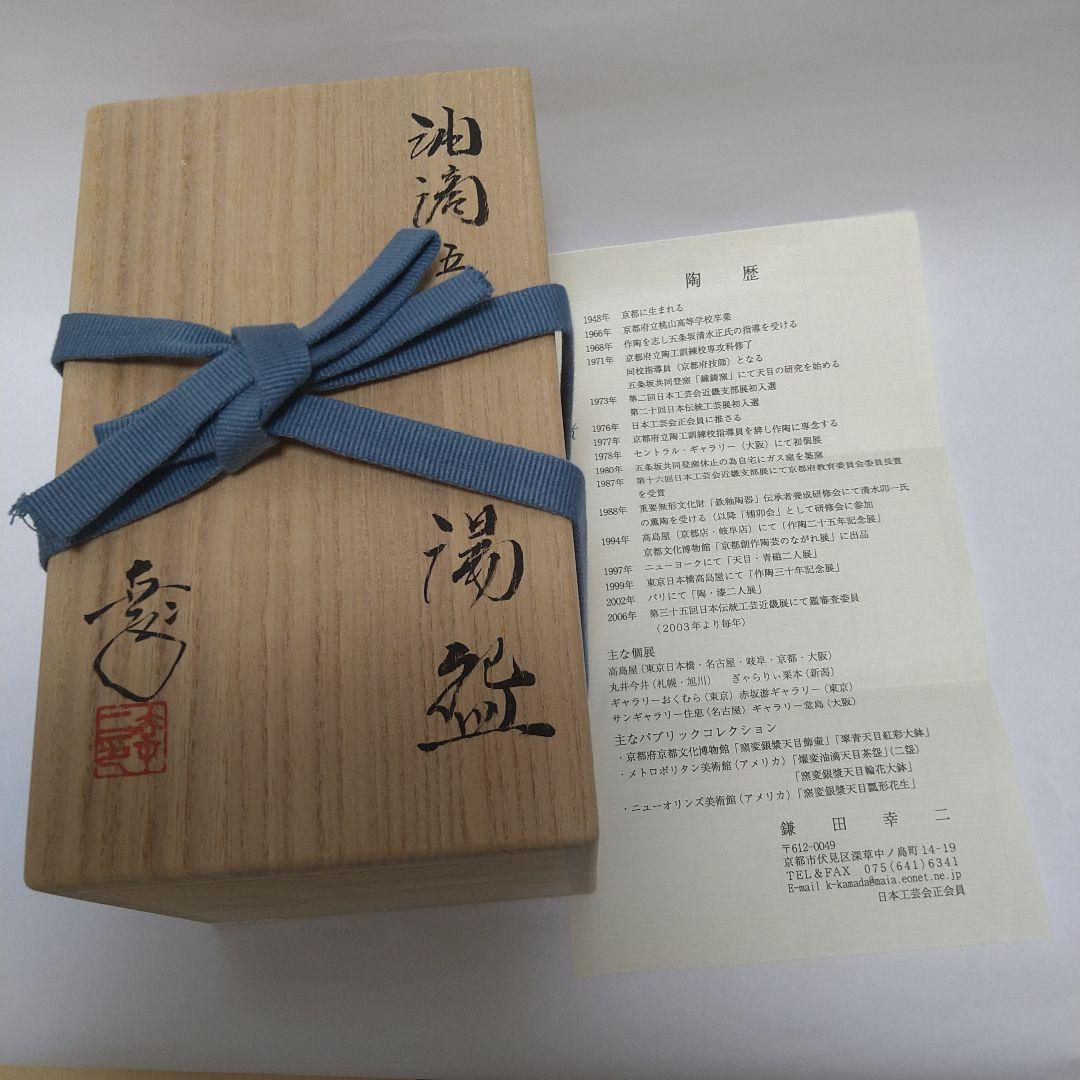 油滴
五
湯盌
幸
幸二
陶歴
1948年 京都に生まれる
1966年 京都府立桃山高等学校卒業
1968年 作陶を志し五条坂清水正氏の指導を受ける
1971年 京都府立陶工訓練校専攻科修了
同校指導員（京都府技師）となる
五条坂共同登窯「鐘鋳窯」にて天目の研究を始める
1973年 第二回日本工芸会近畿支部展初入選
第二十回日本伝統工芸展初入選
1976年 日本工芸会正会員に推さる
1977年 京都府立陶工訓練校指導員を辞し作陶に専念する
1978年 セントラル・ギャラリー（大阪）にて初個展
1980年 五条坂共同登窯休止の為自宅にガス窯を築窯
1987年 第十六回日本工芸会近畿支部展にて京都府教育委員会委員長賞
を受賞
1988年 重要無形文化財「鉄釉陶器」伝承者養成研修会にて清水卯一氏
の薫陶を受ける（以降「栩卯会」として研修会に参加
1994年 高島屋（京都店・岐阜店）にて「作陶二十五年記念展」
京都文化博物館「京都創作陶芸のながれ展」に出品
1997年 ニューヨークにて「天目・青磁二人展」
1999年 東京日本橋高島屋にて「作陶三十年記念展」
2002年 パリにて「陶・漆二人展」
2006年 第三十五回日本伝統工芸近畿展にて鑑審査委員
（2003年より毎年）
主な個展
高島屋（東京日本橋・名古屋・岐阜・京都・大阪）
丸井今井（札幌・旭川） ぎゃらりぃ栗本（新潟）
ギャラリーおくむら（東京）赤坂游ギャラリー（東京）
サンギャラリー住恵（名古屋）ギャラリー堂島（大阪）
主なパブリックコレクション
・京都府京都文化博物館「窯変銀漿天目飾壷」「翠青天目紅彩大鉢」
・メトロポリタン美術館（アメリカ）「燿変油滴天目茶盌」（二盌）
「窯変銀漿天目輪花大鉢」
・ニューオリンズ美術館（アメリカ）「窯変銀漿天目瓢形花生」
鎌田幸二
〒612-0049
京都市伏見区深草中ノ島町14-19
TEL＆FAX 075(641)6341
E-mail k-kamada@maia.eonet.ne.jp
日本工芸会正会員